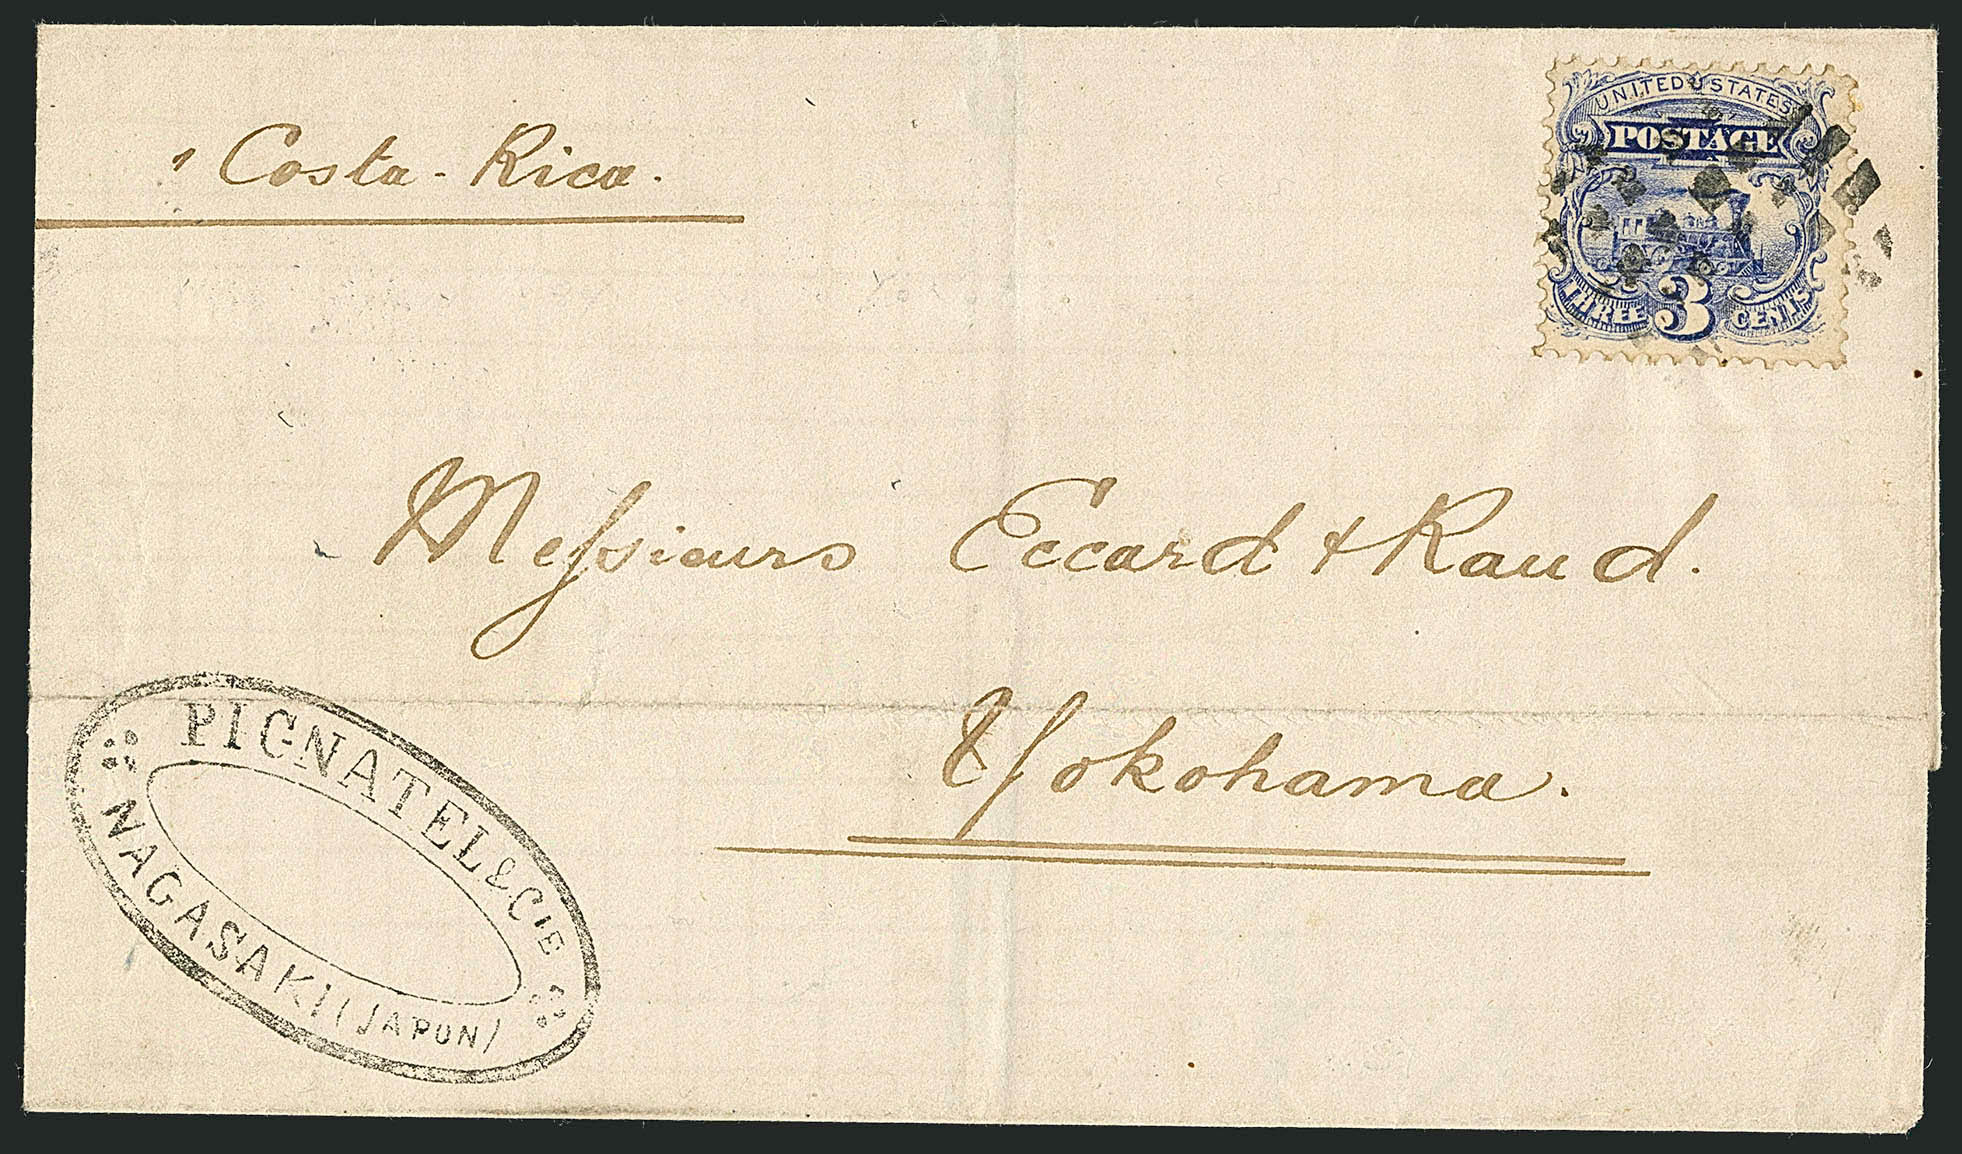 Costa-Rica.
UNITED STATES
POSTAGE
THREE 3 CENTS
Messieurs Eccard & Raud.
Yokohama.
PIGNATEL & CIE
NAGASAKI (JAPON)